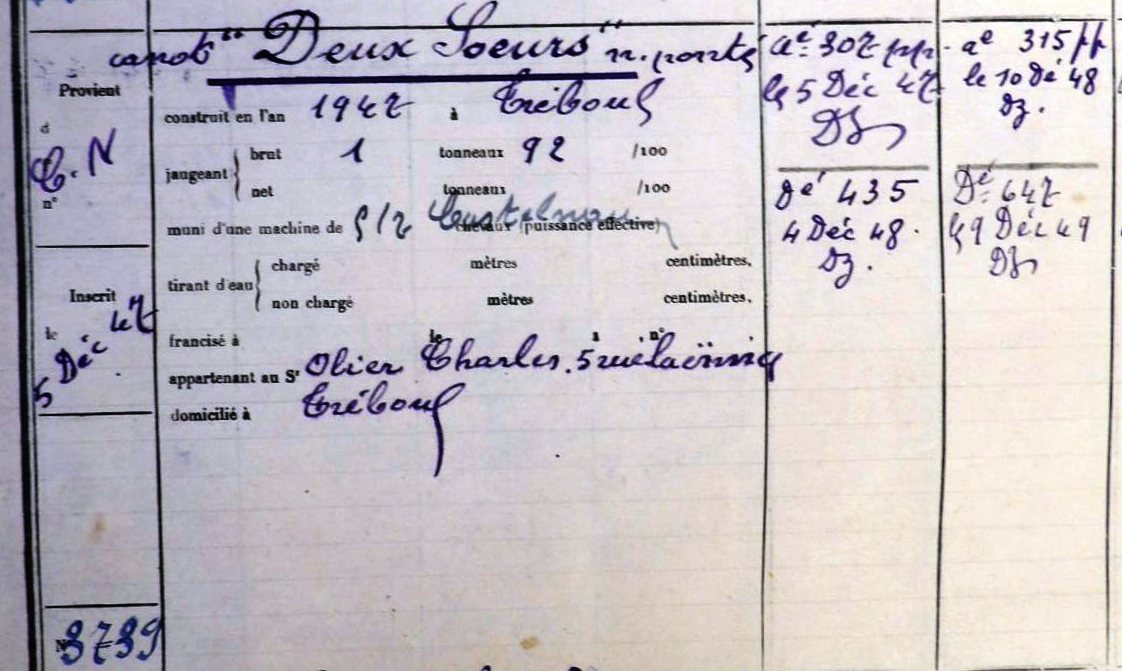 canot "Deux Soeurs" n. ponté
Provient
d
C. N
n°
construit en l'an 1947 à Tréboul
jaugeant
brut 1 tonneaux 92 /100
net tonneaux /100
muni d'une machine de 5/7 chevaux (puissance effective)
tirant d'eau
chargé mètres centimètres.
non chargé mètres centimètres.
Inscrit
le
5 Déc 47
francisé à le n°
appartenant au Sr Olier Charles. 5 rue Laënnec
domicilié à Tréboul
N° 3739
ae 307 pp.
le 5 Déc 47
Dz
Dé 435
4 Déc 48.
Dz.
ae 315 pp
le 10 Dé 48
Dz.
Dé 647
le 9 Déc 49
Dz